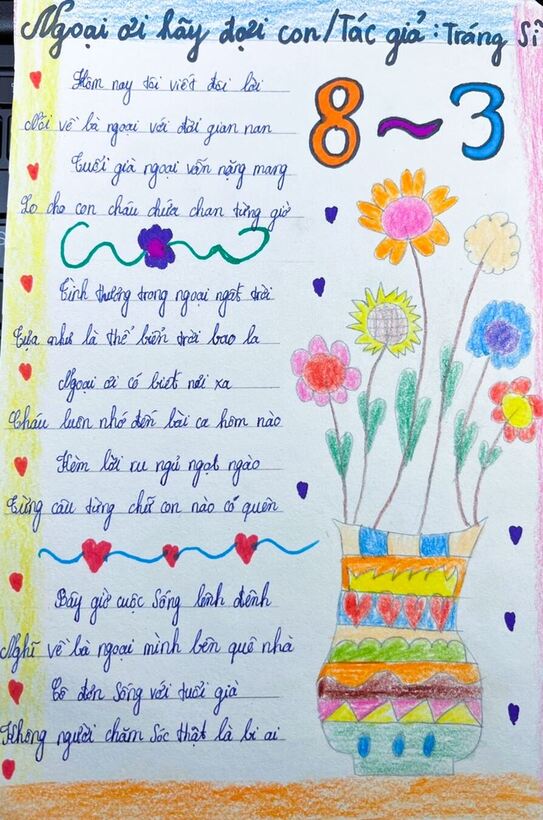 Ngoại ơi hãy đợi con/Tác giả: Tráng Sĩ
8~3
Hôm nay tôi viết đôi lời
Nói về bà ngoại với đời gian nan
Tuổi già ngoại vẫn nặng mang
Lo cho con cháu chứa chan từng giờ
Tình thương trong ngoại ngất trời
Tựa như là thể biển trời bao la
Ngoại ơi có biết nơi xa
Cháu luôn nhớ đến bài ca hôm nào
Kèm lời ru ngủ ngọt ngào
Từng câu từng chữ con nào có quên
Bây giờ cuộc sống lênh đênh
Nghĩ về bà ngoại mình bên quê nhà
Cô đơn sống với tuổi già
Không người chăm sóc thật là bi ai